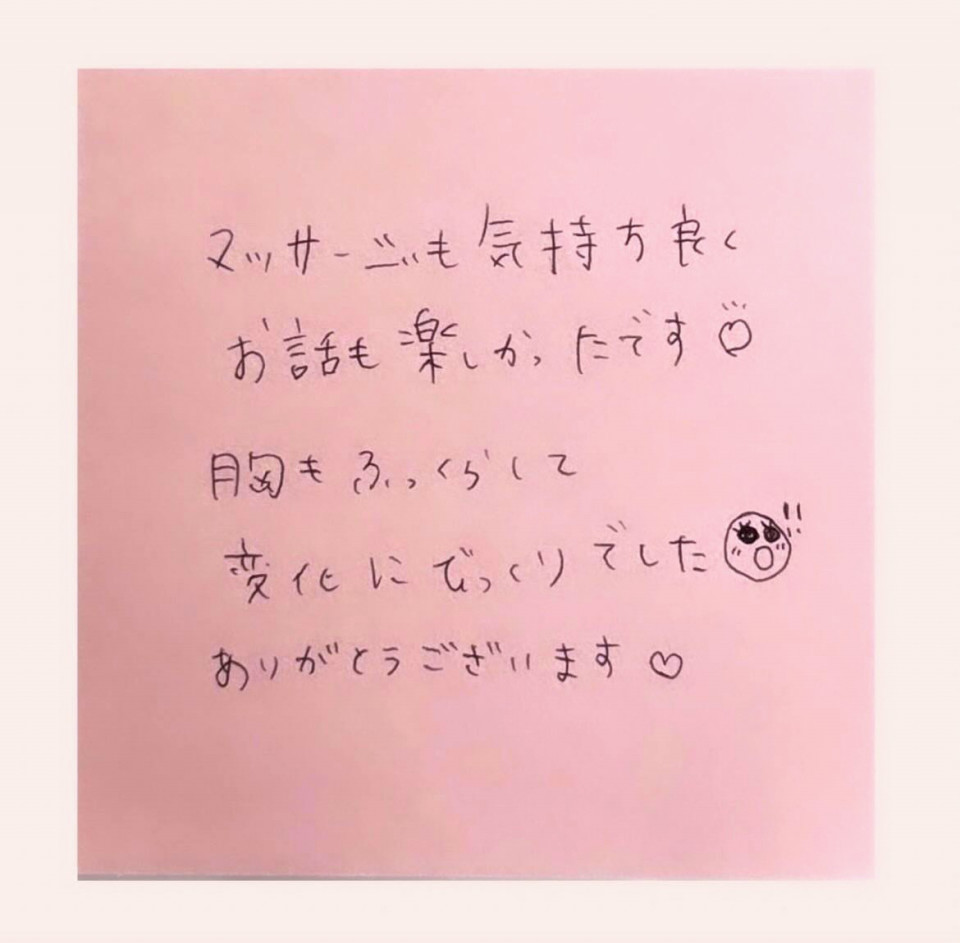 マッサージも気持ち良く
お話も楽しかったです♡
胸もふっくらして
変化にびっくりでした!!
ありがとうございます♡